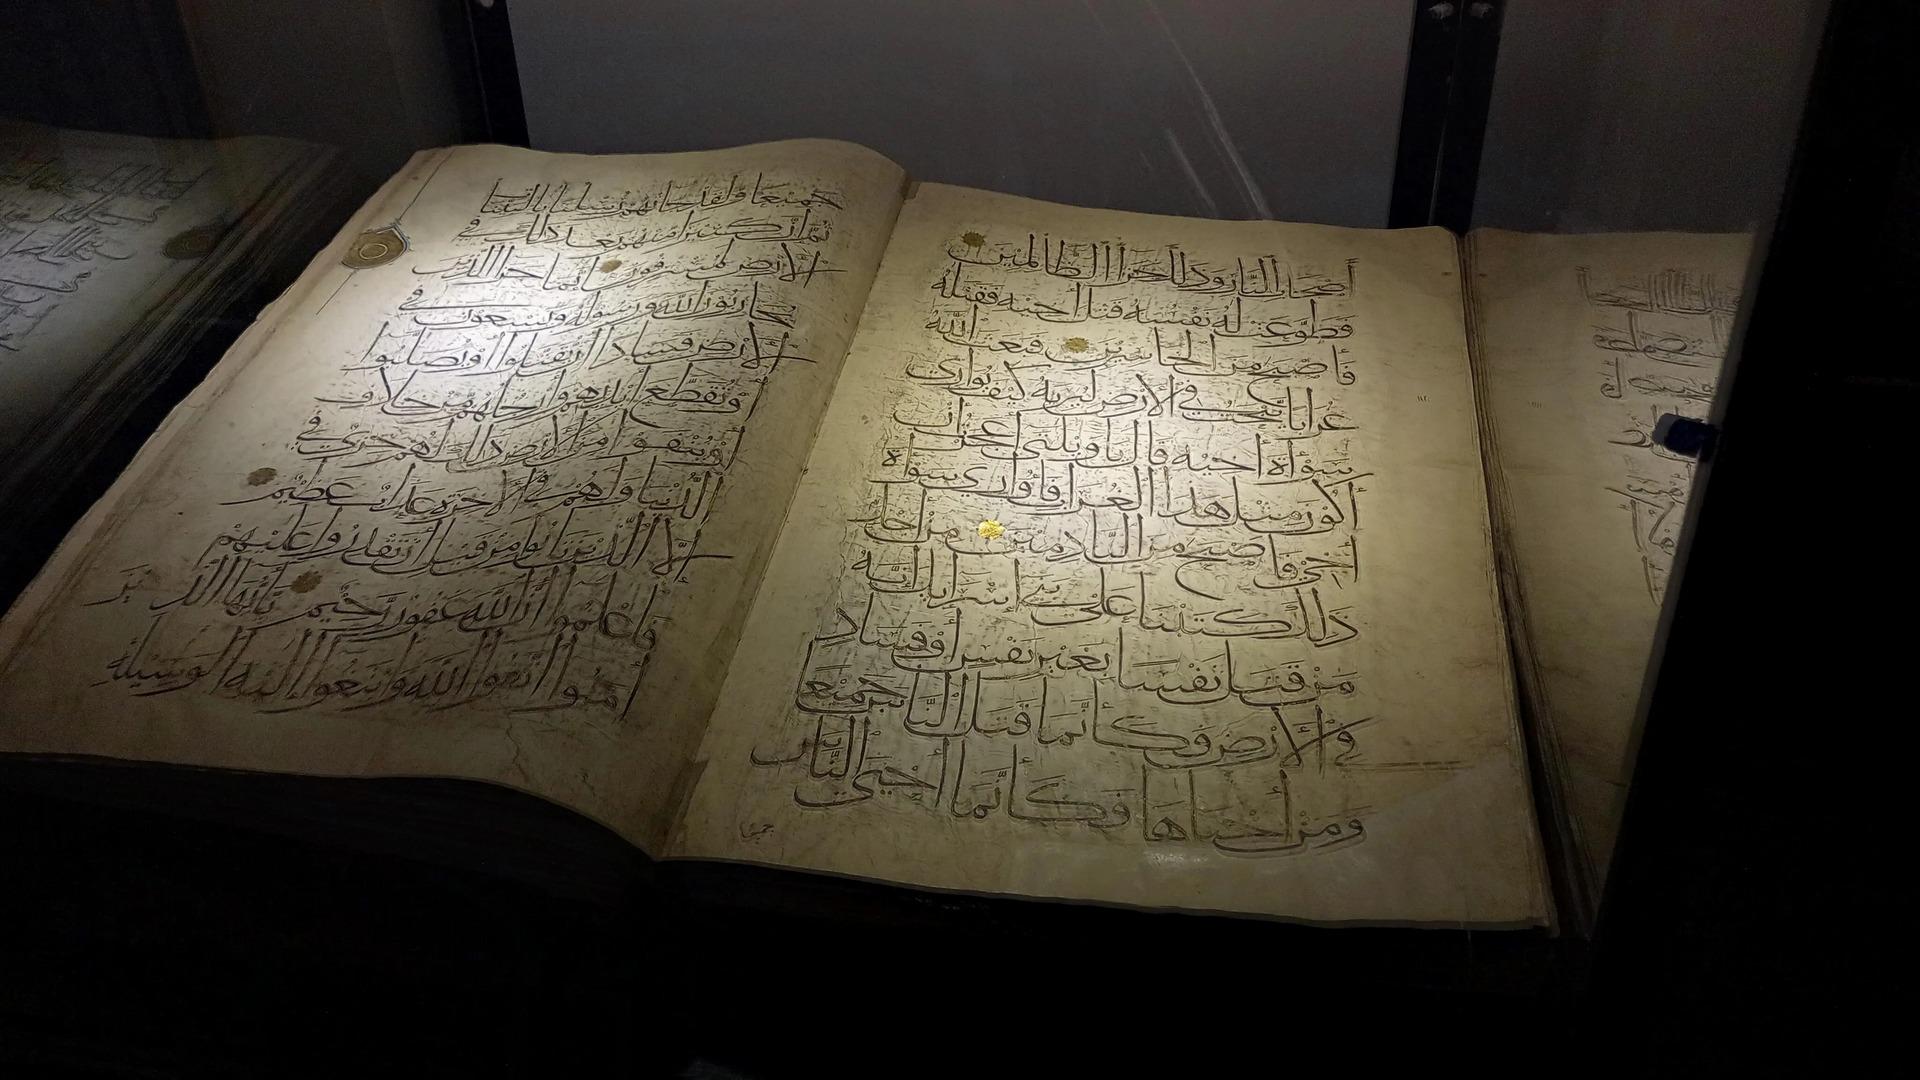 أصحاب النار وذلك جزاء الظالمين
فطوعت له نفسه قتل أخيه فقتله
فأصبح من الخاسرين فبعث الله
غرابا يبحث في الأرض ليريه كيف يواري
سوأة أخيه قال يا ويلتى أعجزت أن
أكون مثل هذا الغراب فأواري سوأة
أخي فأصبح من النادمين من أجل
ذلك كتبنا على بني إسرائيل أنه
من قتل نفسا بغير نفس أو فساد
في الأرض فكأنما قتل الناس جميعا
ومن أحياها فكأنما أحيى الناس
جميعا
جميعا ولقد جاءتهم رسلنا بالبينات
ثم إن كثيرا منهم بعد ذلك في
الأرض لمسرفون إنما جزاء الذين
يحاربون الله ورسوله ويسعون في
الأرض فسادا أن يقتلوا أو يصلبوا
أو تقطع أيديهم وأرجلهم من خلاف
أو ينفوا من الأرض ذلك لهم خزي في
الدنيا ولهم في الآخرة عذاب عظيم
إلا الذين تابوا من قبل أن تقدروا عليهم
فاعلموا أن الله غفور رحيم يا أيها الذين
آمنوا اتقوا الله وابتغوا إليه الوسيلة